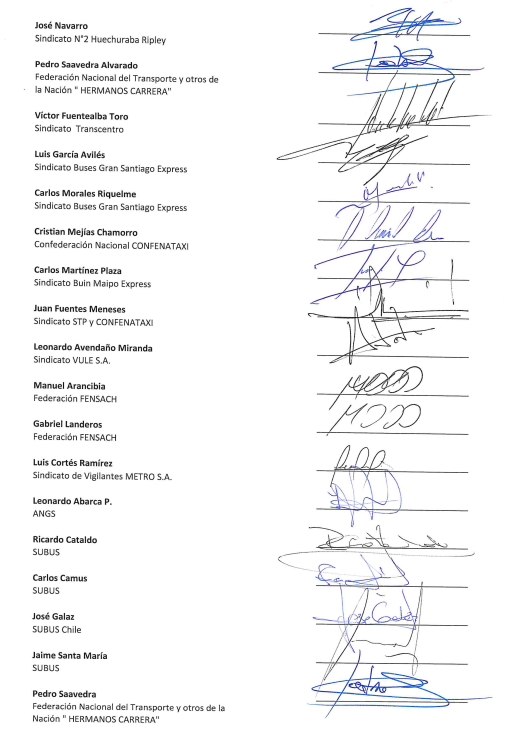 José Navarro
Sindicato N°2 Huechuraba Ripley
Pedro Saavedra Alvarado
Federación Nacional del Transporte y otros de
la Nación " HERMANOS CARRERA"
Víctor Fuentealba Toro
Sindicato Transcentro
Luis García Avilés
Sindicato Buses Gran Santiago Express
Carlos Morales Riquelme
Sindicato Buses Gran Santiago Express
Cristian Mejías Chamorro
Confederación Nacional CONFENATAXI
Carlos Martínez Plaza
Sindicato Buin Maipo Express
Juan Fuentes Meneses
Sindicato STP y CONFENATAXI
Leonardo Avendaño Miranda
Sindicato VULE S.A.
Manuel Arancibia
Federación FENSACH
Gabriel Landeros
Federación FENSACH
Luis Cortés Ramírez
Sindicato de Vigilantes METRO S.A.
Leonardo Abarca P.
ANGS
Ricardo Cataldo
SUBUS
Carlos Camus
SUBUS
José Galaz
SUBUS Chile
Jaime Santa María
SUBUS
Pedro Saavedra
Federación Nacional del Transporte y otros de la
Nación " HERMANOS CARRERA"